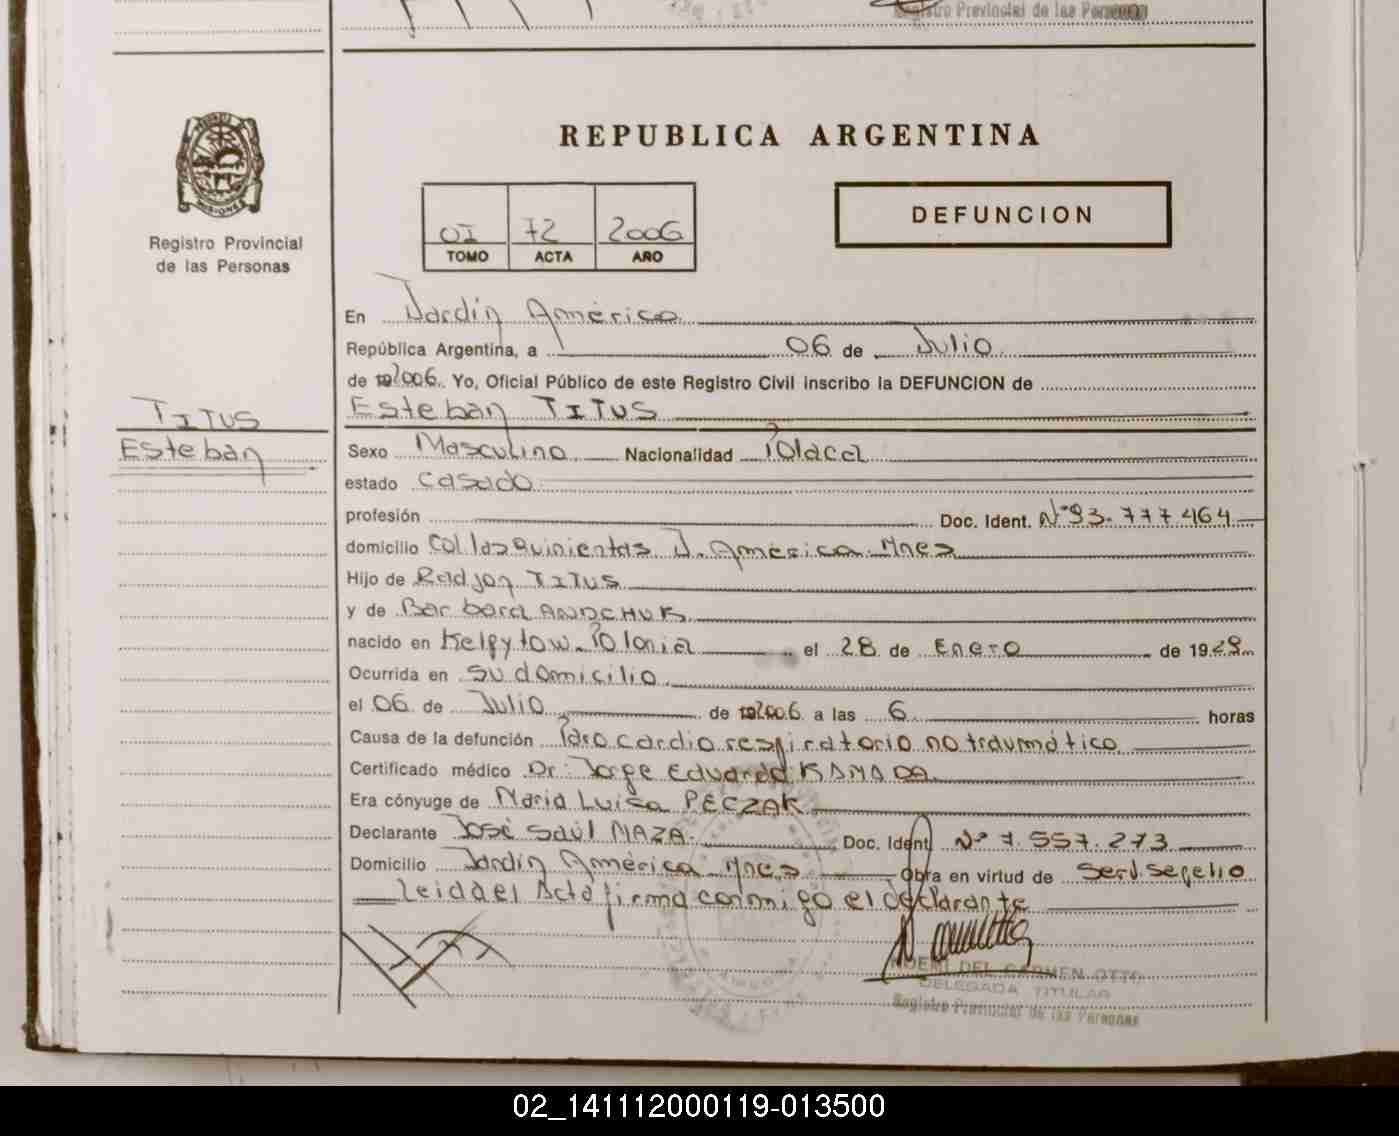 Registro Provincial de las Personas
REPUBLICA ARGENTINA
MISIONES
Registro Provincial
de las Personas
OI 72 2006
TOMO ACTA AÑO
DEFUNCION
En Jardín América
República Argentina, a 06 de Julio
de 2006. Yo, Oficial Público de este Registro Civil inscribo la DEFUNCION de
TITUS
Esteban
Esteban TITUS
Sexo Masculino Nacionalidad Polaca
estado Casado
profesión Doc. Ident. Nº 93.777464
domicilio Col las Quinientas J. América Mnes
Hijo de Radjon TITUS
y de Barbara ANDCHUK
nacido en Kelpytow. Polonia el 28 de Enero de 1929
Ocurrida en su domicilio
el 06 de Julio de 2006 a las 6 horas
Causa de la defunción Paro cardio respiratorio no traumático
Certificado médico Dr: Jorge Eduardo KAMADA
Era cónyuge de Maria Luisa PECZAK
Declarante José Saúl MAZA. Doc. Ident. Nº 7.557.273
Domicilio Jardín América Mnes Obra en virtud de Serv. Sepelio
Leida el Acta firma conmigo el declarante
NOEMI DEL CARMEN OTTO
DELEGADA TITULAR
Registro Provincial de las Personas
02_141112000119-013500